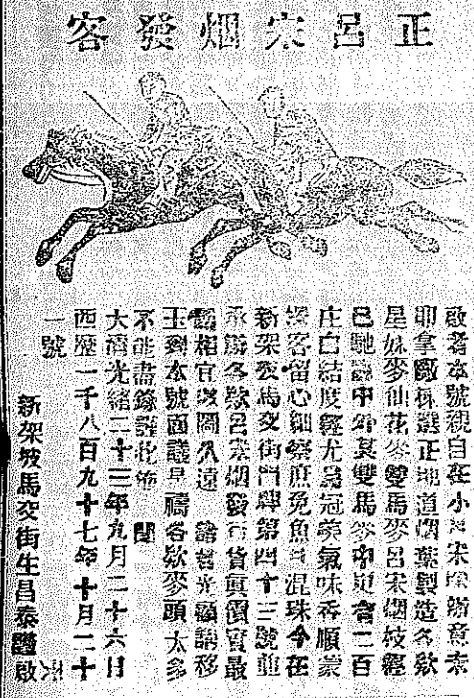 正呂宋烟發客
啟者本號親自在小呂宋
叻拿廠揀選正地道烟葉製造各欵
星妹麥仙花麥雙馬麥呂宋烟枝經
已馳名中外其雙馬麥中更會二百
庄白結度經尤爲冠美氣味香順蒙
客留心細察庶免魚目混珠今在
新架坡馬交街門牌第四十三號
承辦各欵呂宋烟發行貨眞價實
相宜以圖久遠 諸君光顧請移
玉到本號面議是禱各欵麥頭太多
不能盡錄謹此佈 聞
大清光緒二十三年九月二十六日
西歷一千八百九十七年十月二十
一號
新架坡馬交街生昌泰謹啟